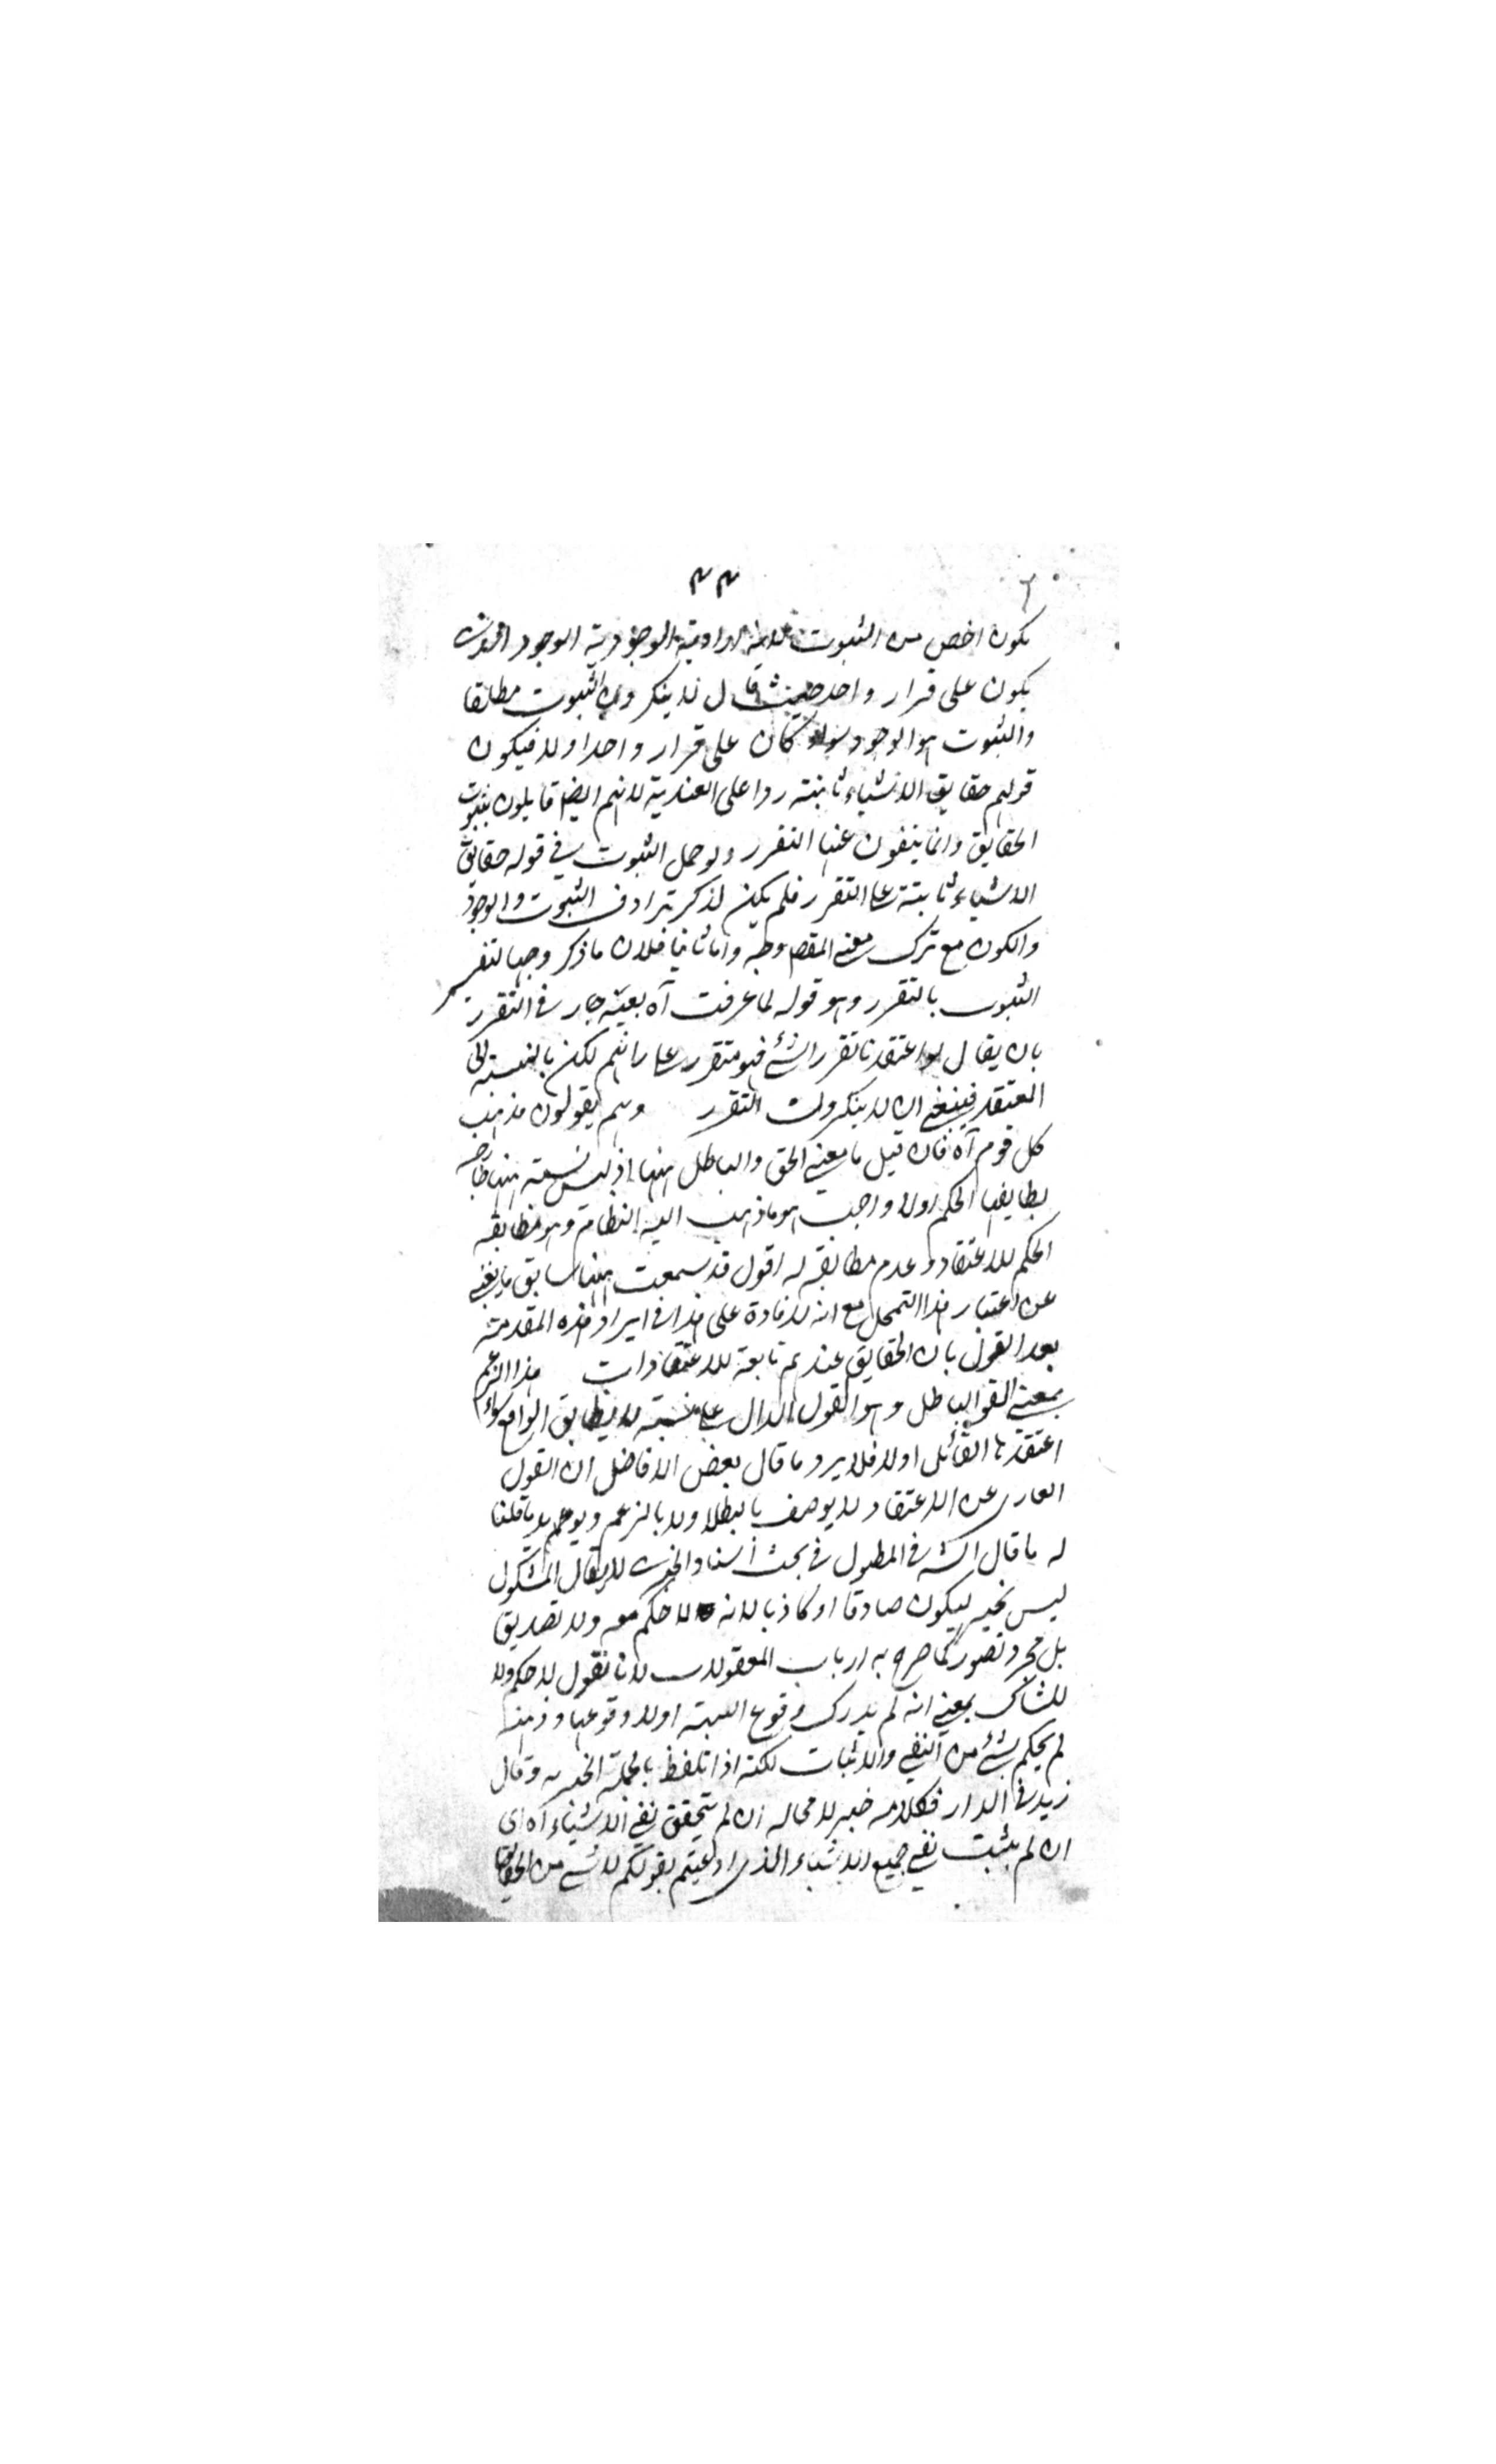 ٣٣
يكون اخص من الثبوت الوجود
يكون على قرار واحد قال لا ينكرون الثبوت مطلقا
والثبوت هو الوجود سواء كان على قرار واحد اولا فيكون
قولهم حقايق الاشياء ثابتة ردا على العندية لانهم ايضا قايلون بثبوت
الحقايق وانما ينفون عنها التقرر ولو حمل الثبوت في قوله حقايق
الاشياء ثابتة على التقرر فلم يكن لذكر ترادف الثبوت والوجود
والكون مع ترك معنى المقص وجه واما ثانيا فلان ما ذكر وجها لتفسير
الثبوت بالتقرر وهو قوله لما عرفت آه بعينه جار في التقرر
بان يقال لو اعتقدنا تقرر الشئ فهو متقرر على رائهم لكن بالنسبة الى
المعتقد فينبغي ان لا ينكرون التقرر وهم يقولون مذهب
كل قوم آه فان قيل ما معنى الحق والباطل ههنا اذ ليس نسبة ههنا خارجة
يطابقها الحكم اولا واجيب هو ما ذهب اليه النظام وهو مطابقة
الحكم للاعتقاد وعدم مطابقة له اقول قد سمعت ههنا سابق ما يغني
عن اعتبار هذا التمحل مع انه لا فادة على هذا في ايراد هذه المقدمة
بعد القول بان الحقايق عندهم تابعة للاعتقادات هذا الزعم
بمعنى القول الباطل وهو القول الدال على نسبة لا يطابق الواقع سواء
اعتقدها القائل اولا فلا يرد ما قال بعض الافاضل ان القول
العارى عن الاعتقاد لا يوصف بالبطلا ولا بالزعم ما قلنا
له ما قال الشه في المطول في بحث اسناد الخبرى لا يقال المشكوك
ليس بخبر ليكون صادقا او كاذبا لانه لا حكم معه ولا تصديق
بل مجرد تصور كما صرح به ارباب المعقولات لانا نقول لا حكم ولا
للشاك بمعنى انه لم يدرك وقوع النسبة اولا وقوعها وذهنه
لم يحكم بشئ من النفى والاثبات لكنه اذا تلفظ بالجملة الخبرية وقال
زيد في الدار فكلامه خبر لا محاله ان لم يتحقق نفى الاشياء آه اى
ان لم يثبت نفى جميع الاشياء الذى ادعيتم بقولكم لا شئ من الحقايق